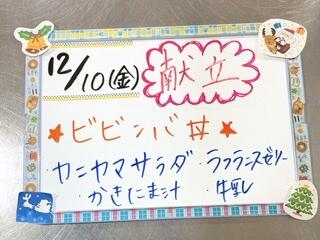 12/10(金) 献立
★ビビンバ丼★
・カニヤマサラダ ・ラフランスゼリー
・かきたま汁 ・牛乳